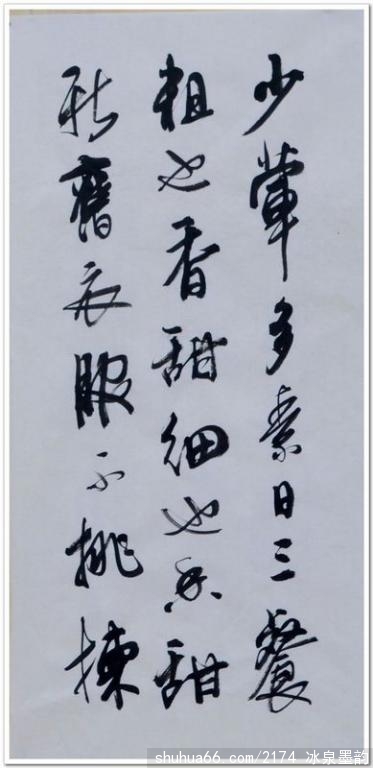 少葷多素日三餐
粗也香甜細也香甜
新舊衣服不挑揀
shuhua66.com/2174 冰泉墨韵